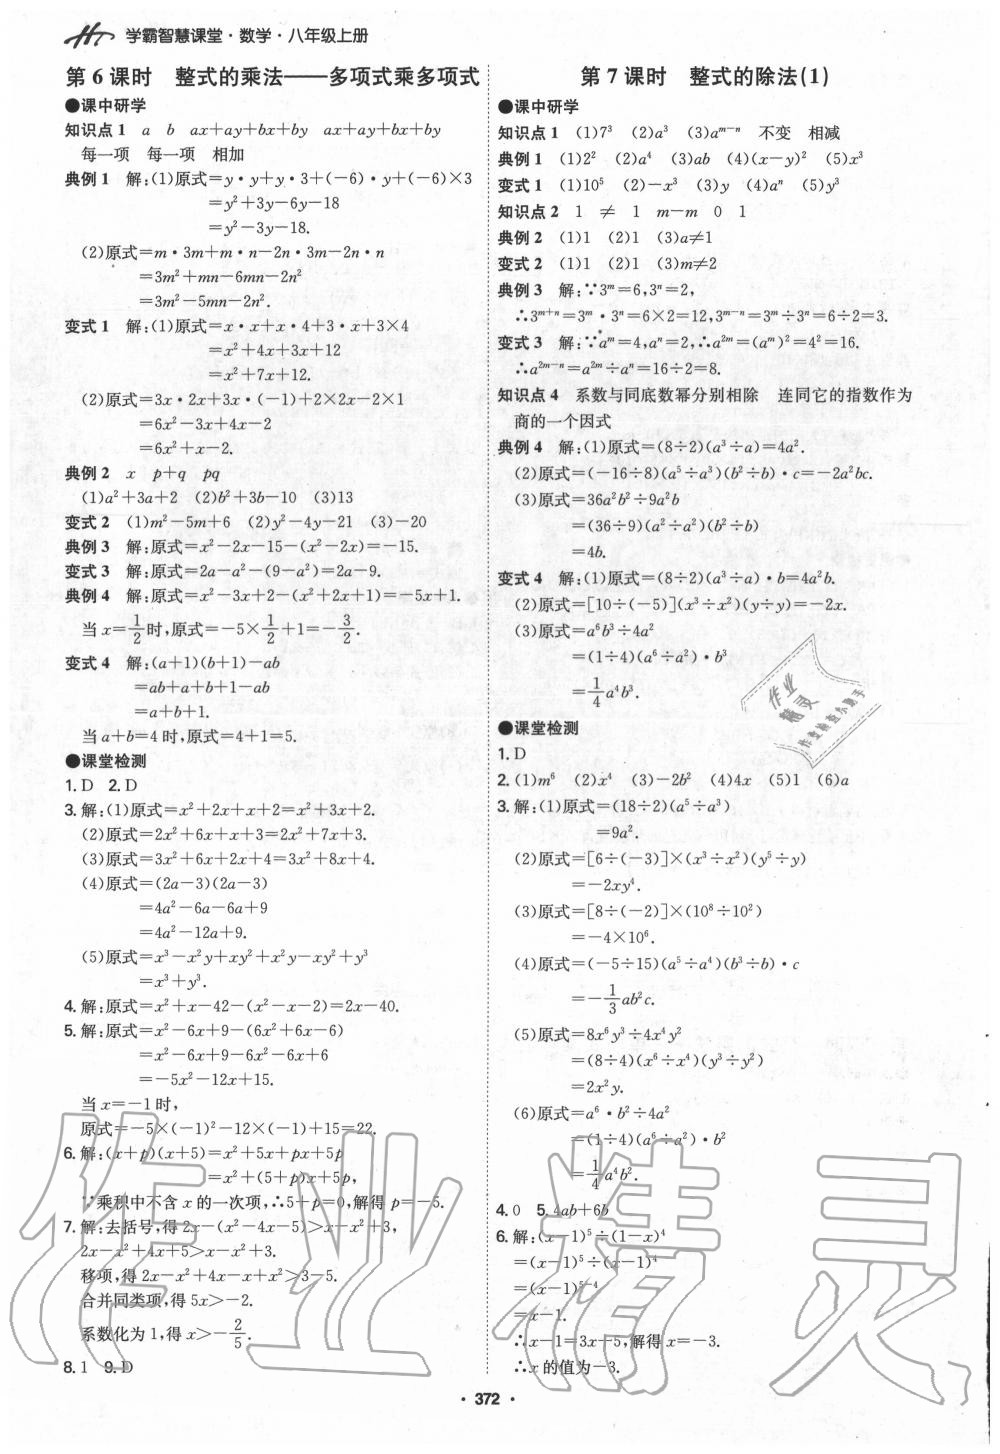 学霸智慧课堂·数学·八年级上册
第6课时 整式的乘法——多项式乘多项式
●课中研学
知识点1 a b ax+ay+bx+by ax+ay+bx+by
每一项 每一项 相加
典例1 解:(1)原式=y·y+y·3+(-6)·y+(-6)×3
=y²+3y-6y-18
=y²-3y-18.
(2)原式=m·3m+m·n-2n·3m-2n·n
=3m²+mn-6mn-2n²
=3m²-5mn-2n².
变式1 解:(1)原式=x·x+x·4+3·x+3×4
=x²+4x+3x+12
=x²+7x+12.
(2)原式=3x·2x+3x·(-1)+2×2x-2×1
=6x²-3x+4x-2
=6x²+x-2.
典例2 x p+q pq
(1)a²+3a+2 (2)b²+3b-10 (3)13
变式2 (1)m²-5m+6 (2)y²-4y-21 (3)-20
典例3 解:原式=x²-2x-15-(x²-2x)=-15.
变式3 解:原式=2a-a²-(9-a²)=2a-9.
典例4 解:原式=x²-3x+2-(x²+2x+1)=-5x+1.
当x=1/2时,原式=-5×1/2+1=-3/2.
变式4 解:(a+1)(b+1)-ab
=ab+a+b+1-ab
=a+b+1.
当a+b=4时,原式=4+1=5.
●课堂检测
1.D 2.D
3.解:(1)原式=x²+2x+x+2=x²+3x+2.
(2)原式=2x²+6x+x+3=2x²+7x+3.
(3)原式=3x²+6x+2x+4=3x²+8x+4.
(4)原式=(2a-3)(2a-3)
=4a²-6a-6a+9
=4a²-12a+9.
(5)原式=x³-x²y+xy²+x²y-xy²+y³
=x³+y³.
4.解:原式=x²+x-42-(x²-x-2)=2x-40.
5.解:原式=x²-6x+9-(6x²+6x-6)
=x²-6x+9-6x²-6x+6
=-5x²-12x+15.
当x=-1时,
原式=-5×(-1)²-12×(-1)+15=22.
6.解:(x+p)(x+5)=x²+5x+px+5p
=x²+(5+p)x+5p,
∵乘积中不含x的一次项,∴5+p=0,解得p=-5.
7.解:去括号,得2x-(x²-4x-5)>x-x²+3,
2x-x²+4x+5>x-x²+3.
移项,得2x-x²+4x-x+x²>3-5.
合并同类项,得5x>-2.
系数化为1,得x>-2/5.
8.1 9.D
第7课时 整式的除法(1)
●课中研学
知识点1 (1)7³ (2)a³ (3)aᵐ⁻ⁿ 不变 相减
典例1 (1)2² (2)a⁴ (3)ab (4)(x-y)² (5)x³
变式1 (1)10⁵ (2)-x³ (3)y (4)aⁿ (5)y³
知识点2 1 ≠ 1 m-m 0 1
典例2 (1)1 (2)1 (3)a≠1
变式2 (1)1 (2)1 (3)m≠2
典例3 解:∵3ᵐ=6,3ⁿ=2,
∴3ᵐ⁺ⁿ=3ᵐ·3ⁿ=6×2=12,3ᵐ⁻ⁿ=3ᵐ÷3ⁿ=6÷2=3.
变式3 解:∵aᵐ=4,aⁿ=2,∴a²ᵐ=(aᵐ)²=4²=16.
∴a²ᵐ⁻ⁿ=a²ᵐ÷aⁿ=16÷2=8.
知识点4 系数与同底数幂分别相除 连同它的指数作为
商的一个因式
典例4 解:(1)原式=(8÷2)(a³÷a)=4a².
(2)原式=(-16÷8)(a⁵÷a³)(b²÷b)·c=-2a²bc.
(3)原式=36a²b²÷9a²b
=(36÷9)(a²÷a²)(b²÷b)
=4b.
变式4 解:(1)原式=(8÷2)(a³÷a)·b=4a²b.
(2)原式=[10÷(-5)](x³÷x²)(y÷y)=-2x.
(3)原式=a⁶b³÷4a²
=(1÷4)(a⁶÷a²)·b³
=1/4a⁴b³.
●课堂检测
1.D
2.(1)m⁶ (2)x⁴ (3)-2b² (4)4x (5)1 (6)a
3.解:(1)原式=(18÷2)(a⁵÷a³)
=9a².
(2)原式=[6÷(-3)]×(x³÷x²)(y⁵÷y)
=-2xy⁴.
(3)原式=[8÷(-2)]×(10⁸÷10²)
=-4×10⁶.
(4)原式=(-5÷15)(a⁵÷a⁴)(b³÷b)·c
=-1/3ab²c.
(5)原式=8x⁶y³÷4x⁴y²
=(8÷4)(x⁶÷x⁴)(y³÷y²)
=2x²y.
(6)原式=a⁶·b²÷4a²
=(1÷4)(a⁶÷a²)·b²
=1/4a⁴b².
4.0 5.4ab+6b
6.解:(x-1)⁵÷(1-x)⁴
=(x-1)⁵÷(x-1)⁴
=(x-1)⁵⁻⁴
=x-1.
∴x-1=3x+5,解得x=-3.
∴x的值为-3.
作业
精灵
作业检查小助手
作业精灵
·372·